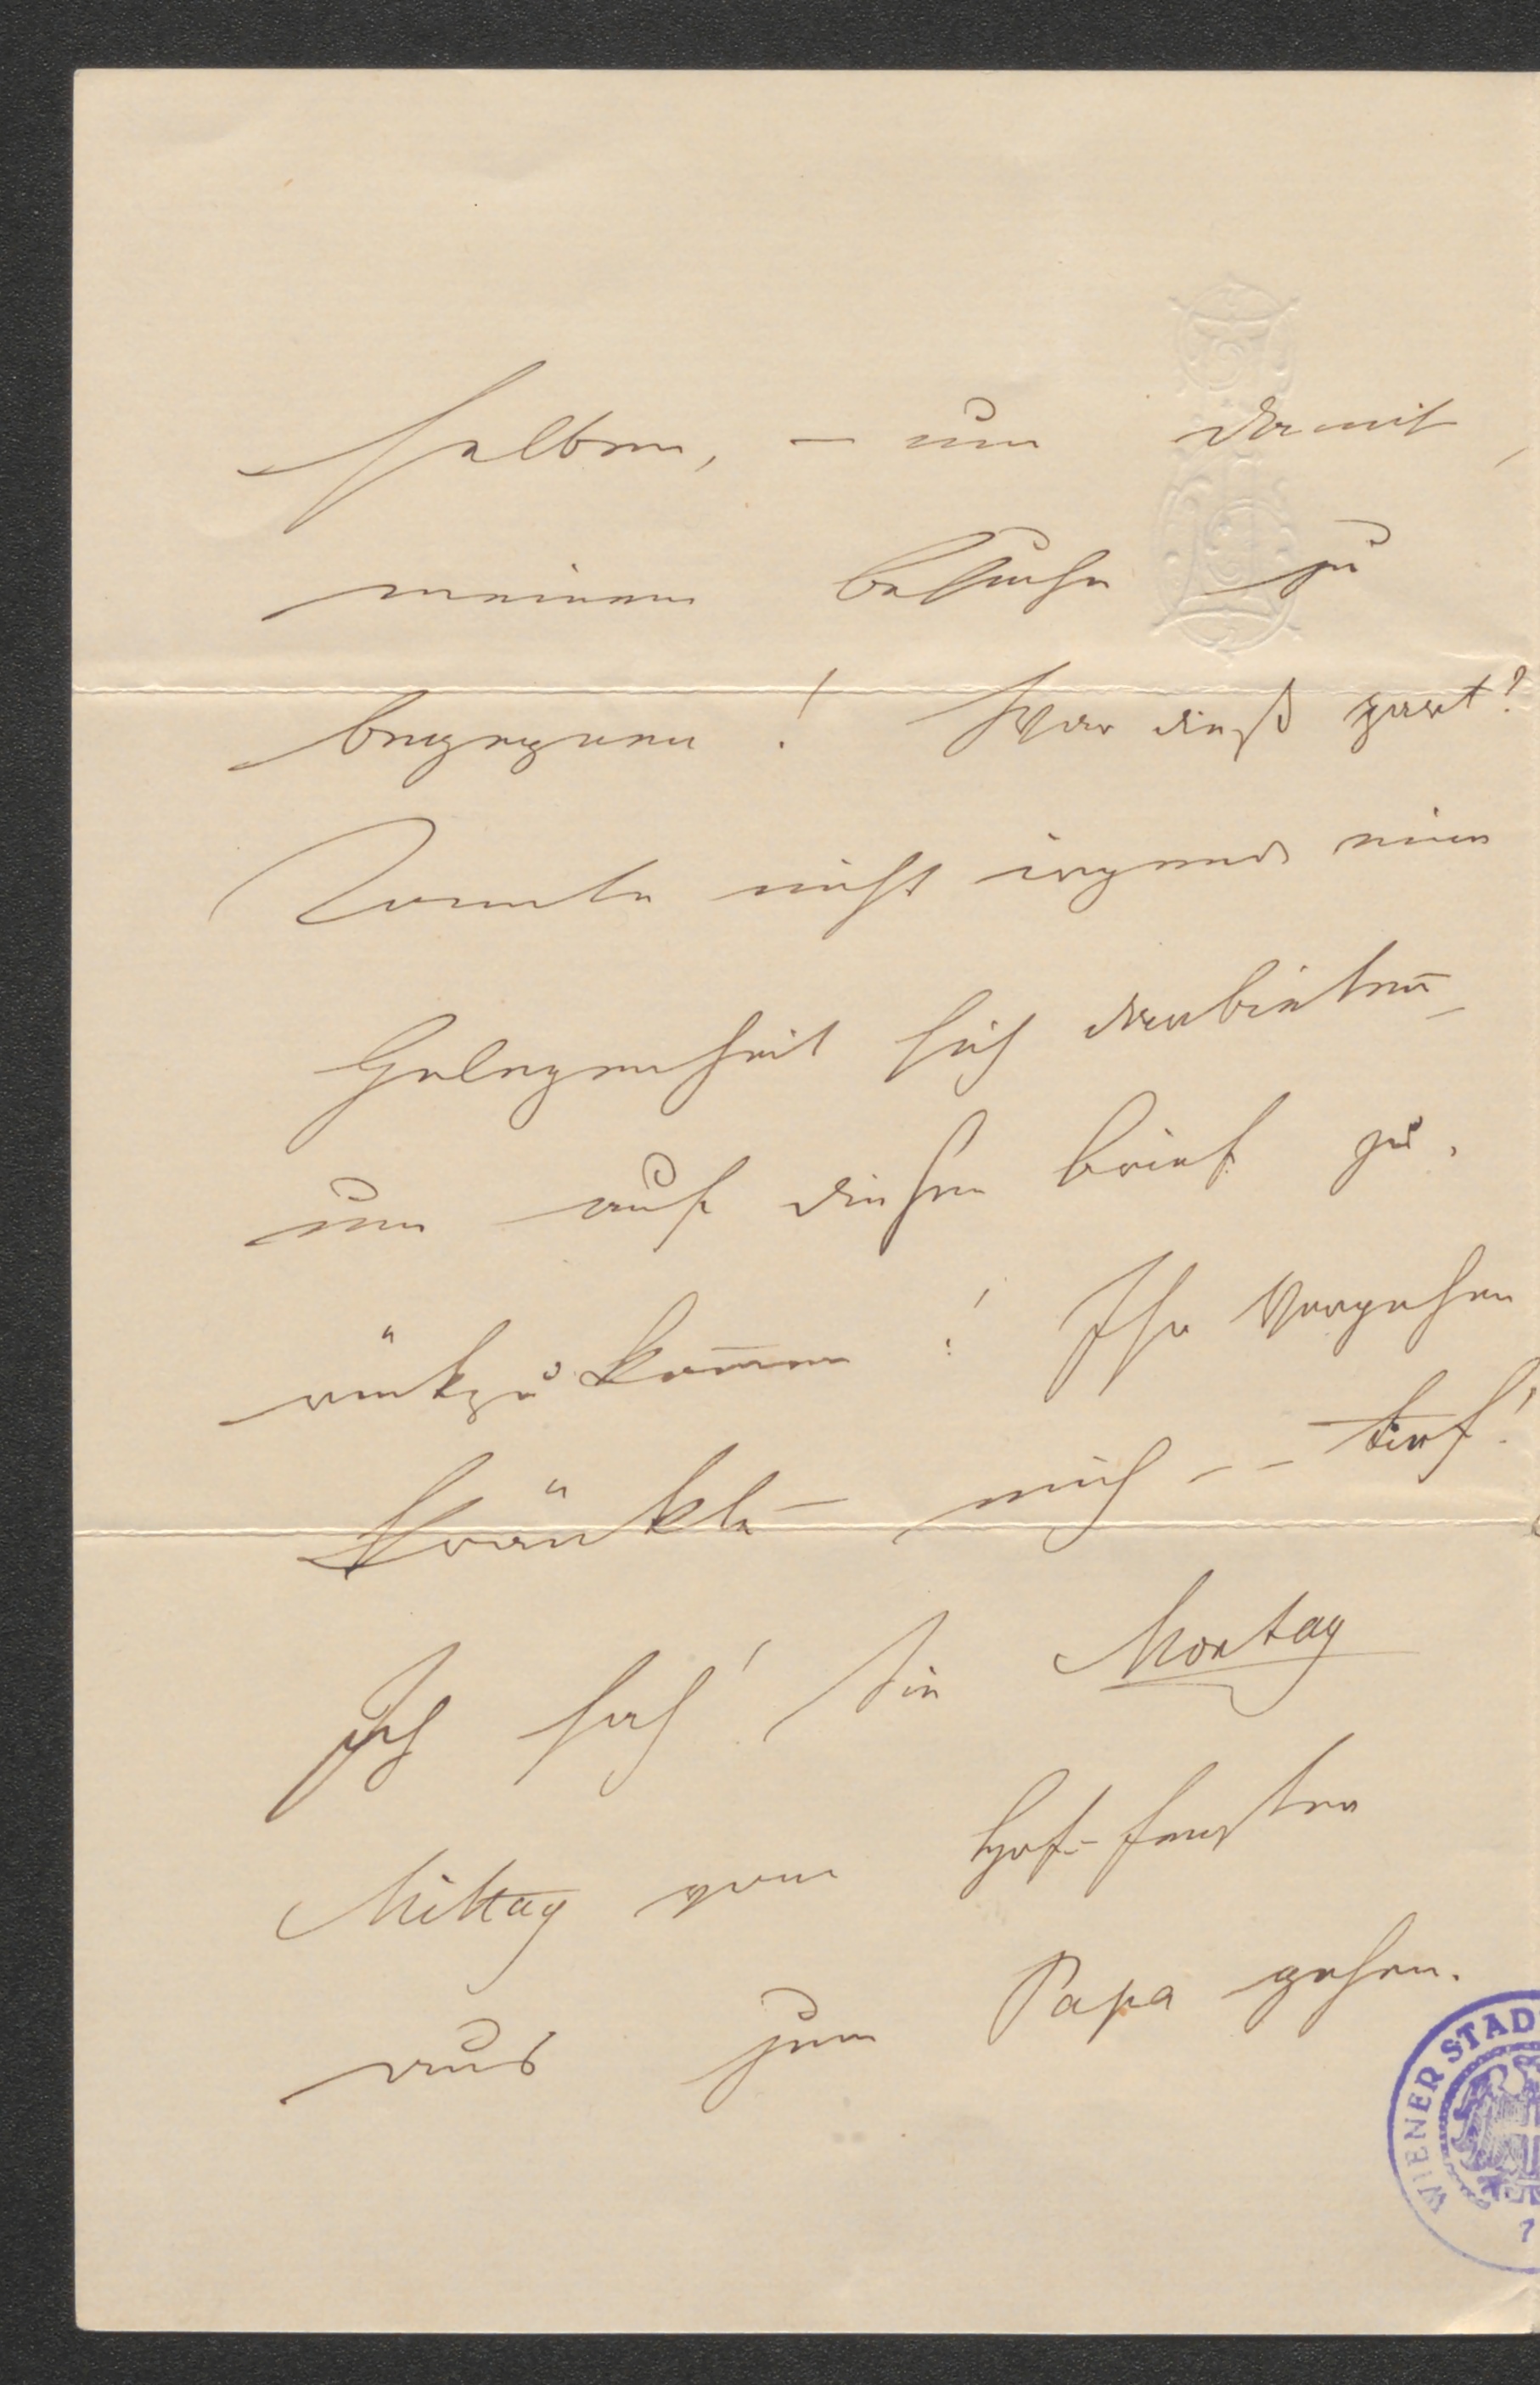 selben, – um damit
meinem Besuche zu
begegnen! War dieß zart?
Konnte nicht irgend eine
Gelegenheit sich darbieten,
um auf diesen Brief zu-
rückzukom̅en! Ihr Vergehen
kränkte mich – – tief!
Ich sah' Sie Montag
Mittag vom Hof-Fenster
aus zum Papa gehen.
WIENER STAD